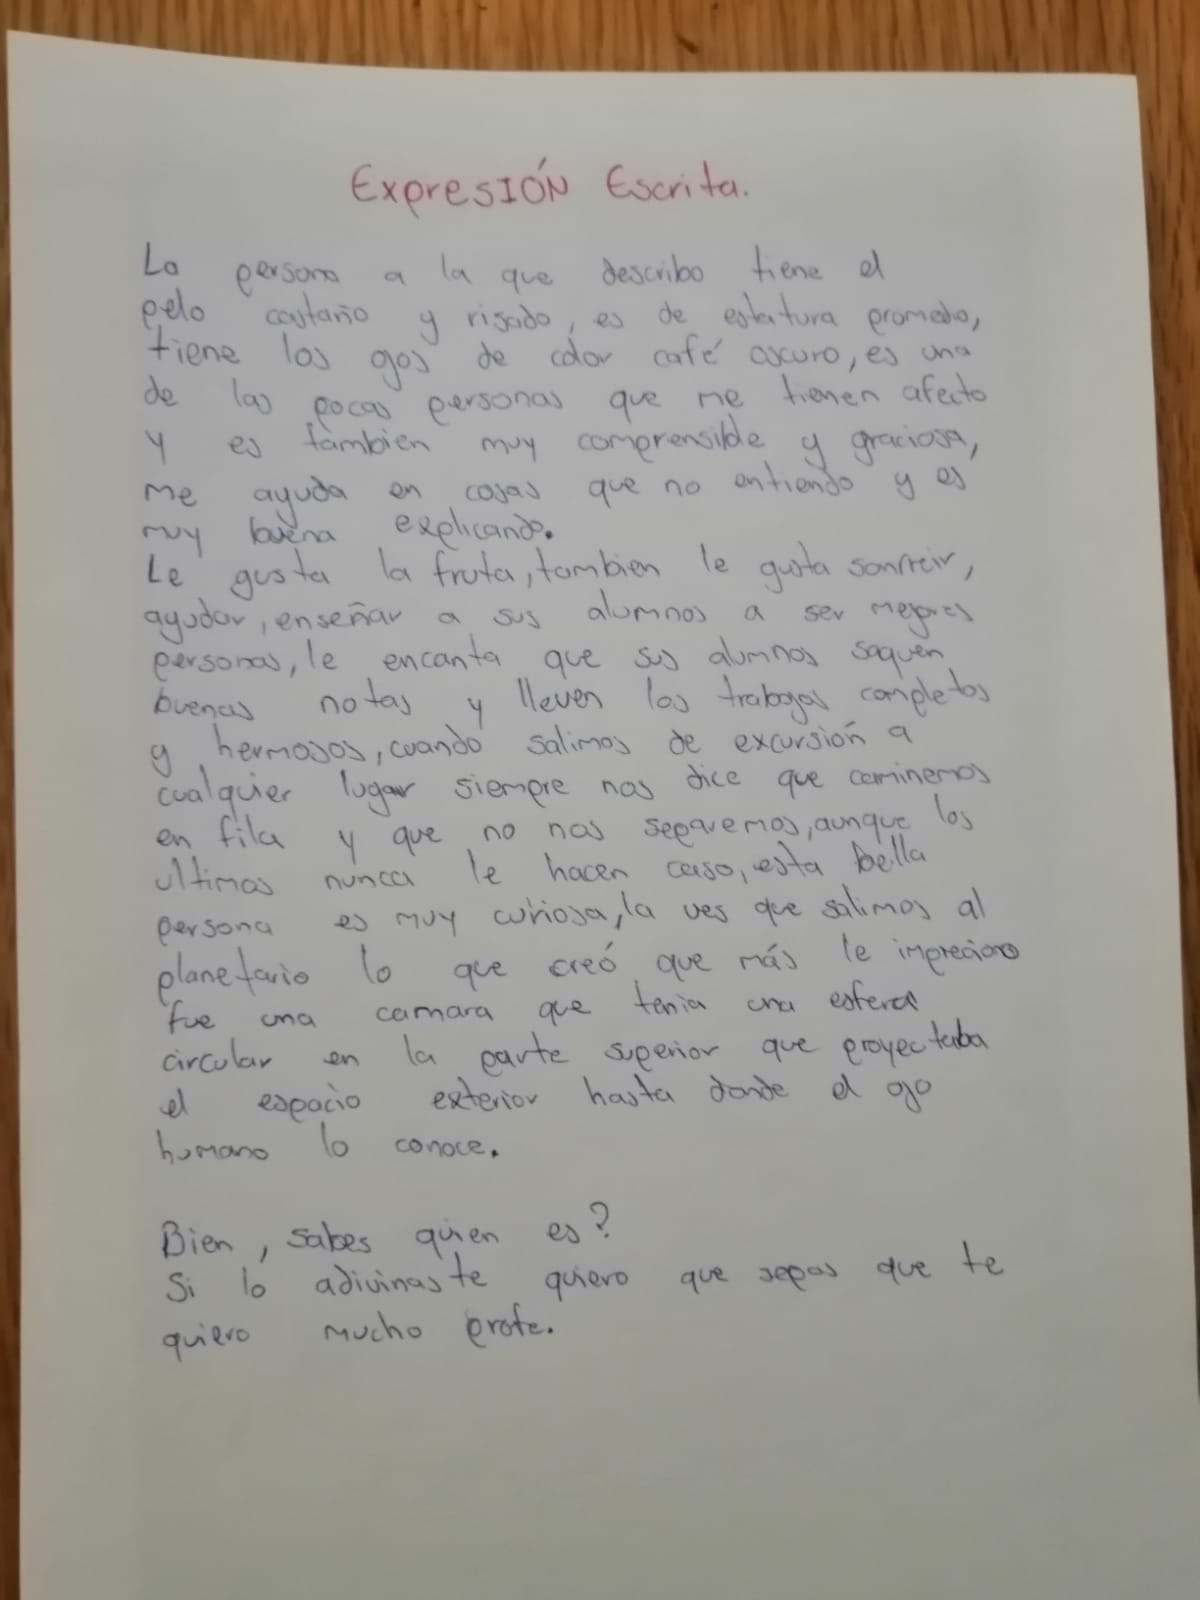 Expresión Escrita.
La persona a la que describo tiene el
pelo castaño y risado, es de estatura promedo,
tiene los ojos de color café oscuro, es una
de las pocas personas que me tienen afecto
y es tambien muy comprensible y graciosa,
me ayuda en cosas que no entiendo y es
muy buena explicando.
Le gusta la fruta, tambien le gusta sonrreir,
ayudar, enseñar a sus alumnos a ser mejores
personas, le encanta que sus alumnos saquen
buenas notas y lleven los trabajos completos
y hermosos, cuando salimos de excursión a
cualquier lugar siempre nos dice que caminemos
en fila y que no nos separemos, aunque los
ultimos nunca le hacen caso, esta bella
persona es muy curiosa, la ves que salimos al
planetario lo que creó que más le impreciono
fue una camara que tenia una esfera
circular en la parte superior que proyectaba
el espacio exterior hasta donde el ojo
humano lo conoce.
Bien, sabes quien es?
Si lo adivinaste quiero que sepas que te
quiero mucho profe.